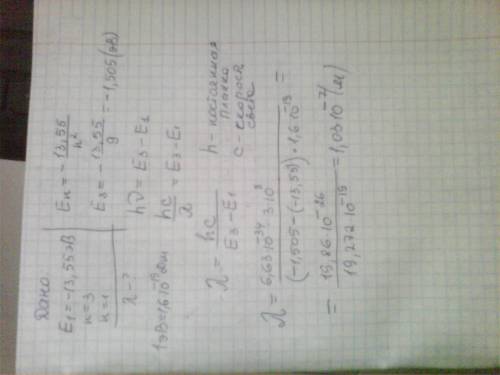 Дано
E₁ = -13,55 эВ
n = 3
n = 1
λ - ?
1эВ = 1,6·10⁻¹⁹ Дж
Eₙ = - 13,55 / n²
E₃ = - 13,55 / 9 = -1,505 (эВ)
hν = E₃ - E₁
hc / λ = E₃ - E₁
λ = hc / (E₃ - E₁)
h - постоянная
Планка
c - скорость
света
λ = 6,63·10⁻³⁴ · 3·10⁸ / ((-1,505 - (-13,55)) · 1,6·10⁻¹⁹) =
= 19,86·10⁻²⁶ / 19,272·10⁻¹⁹ = 1,03·10⁻⁷ (м)